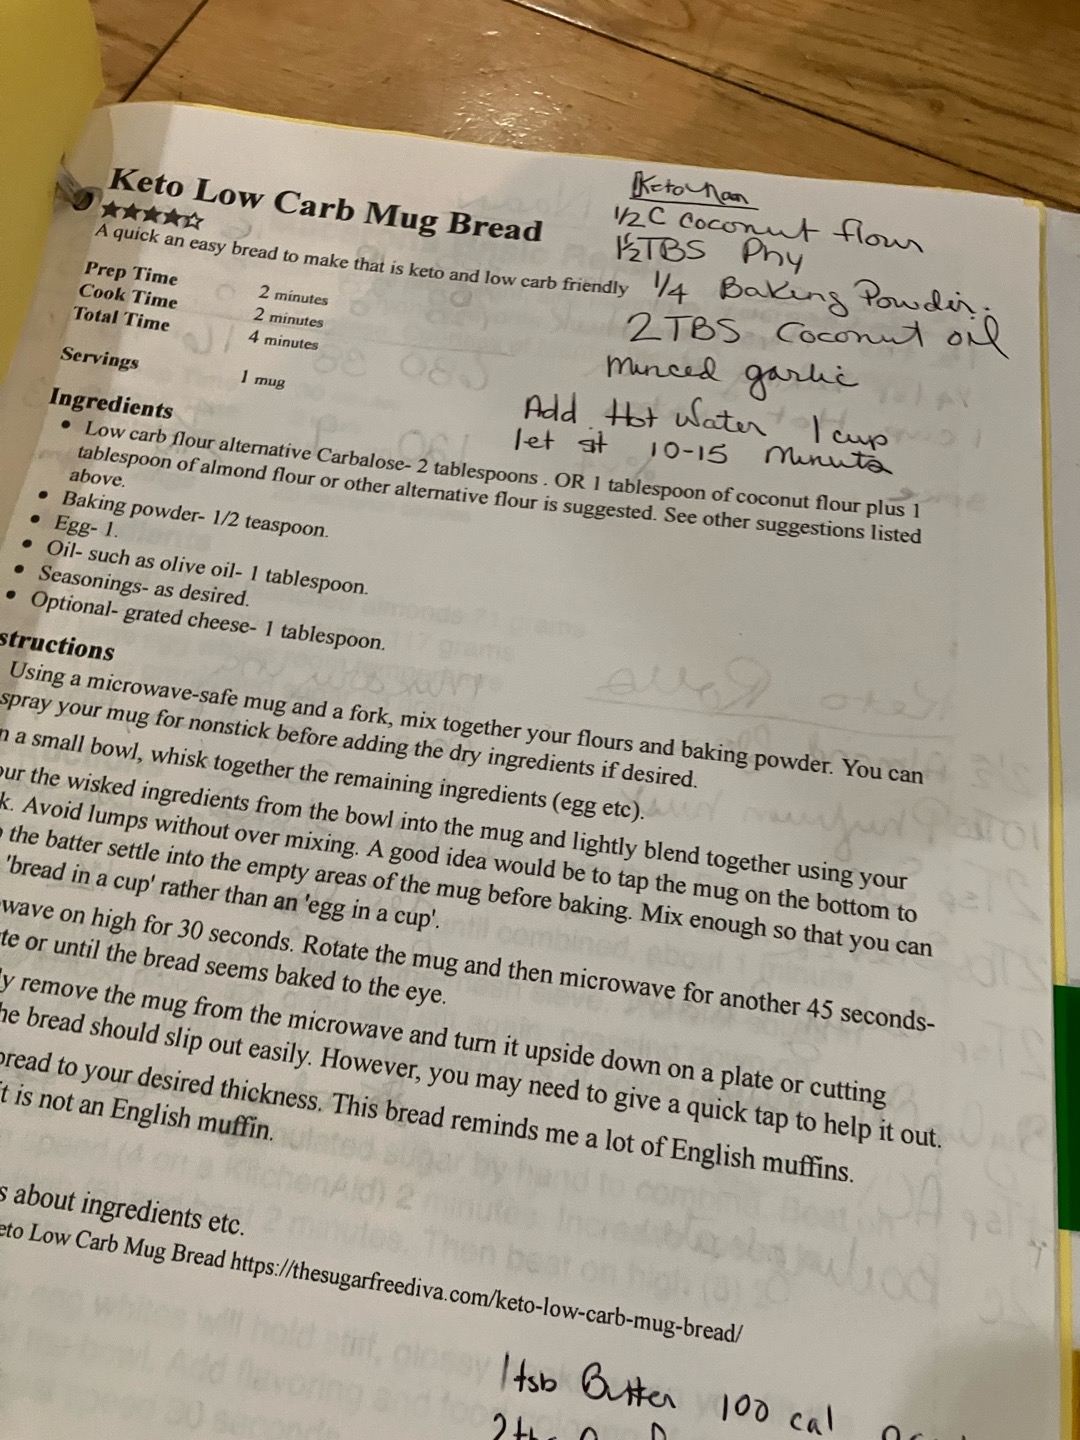 Keto Low Carb Mug Bread
★★★★☆
A quick an easy bread to make that is keto and low carb friendly
Prep Time 2 minutes
Cook Time 2 minutes
Total Time 4 minutes
Servings 1 mug
Keto Nan
1/2 C Coconut flour
1 1/2 TBS Phy
1/4 Baking Powder.
2 TBS Coconut oil
Minced garlic
Add Hot Water 1 cup
let sit 10-15 Minuts
Ingredients
• Low carb flour alternative Carbalose- 2 tablespoons . OR 1 tablespoon of coconut flour plus 1
tablespoon of almond flour or other alternative flour is suggested. See other suggestions listed
above.
• Baking powder- 1/2 teaspoon.
• Egg- 1.
• Oil- such as olive oil- 1 tablespoon.
• Seasonings- as desired.
• Optional- grated cheese- 1 tablespoon.
structions
Using a microwave-safe mug and a fork, mix together your flours and baking powder. You can
spray your mug for nonstick before adding the dry ingredients if desired.
n a small bowl, whisk together the remaining ingredients (egg etc).
our the wisked ingredients from the bowl into the mug and lightly blend together using your
k. Avoid lumps without over mixing. A good idea would be to tap the mug on the bottom to
the batter settle into the empty areas of the mug before baking. Mix enough so that you can
'bread in a cup' rather than an 'egg in a cup'.
wave on high for 30 seconds. Rotate the mug and then microwave for another 45 seconds-
te or until the bread seems baked to the eye.
ly remove the mug from the microwave and turn it upside down on a plate or cutting
he bread should slip out easily. However, you may need to give a quick tap to help it out.
bread to your desired thickness. This bread reminds me a lot of English muffins.
it is not an English muffin.
s about ingredients etc.
eto Low Carb Mug Bread https://thesugarfreediva.com/keto-low-carb-mug-bread/
1 tsb Butter 100 cal